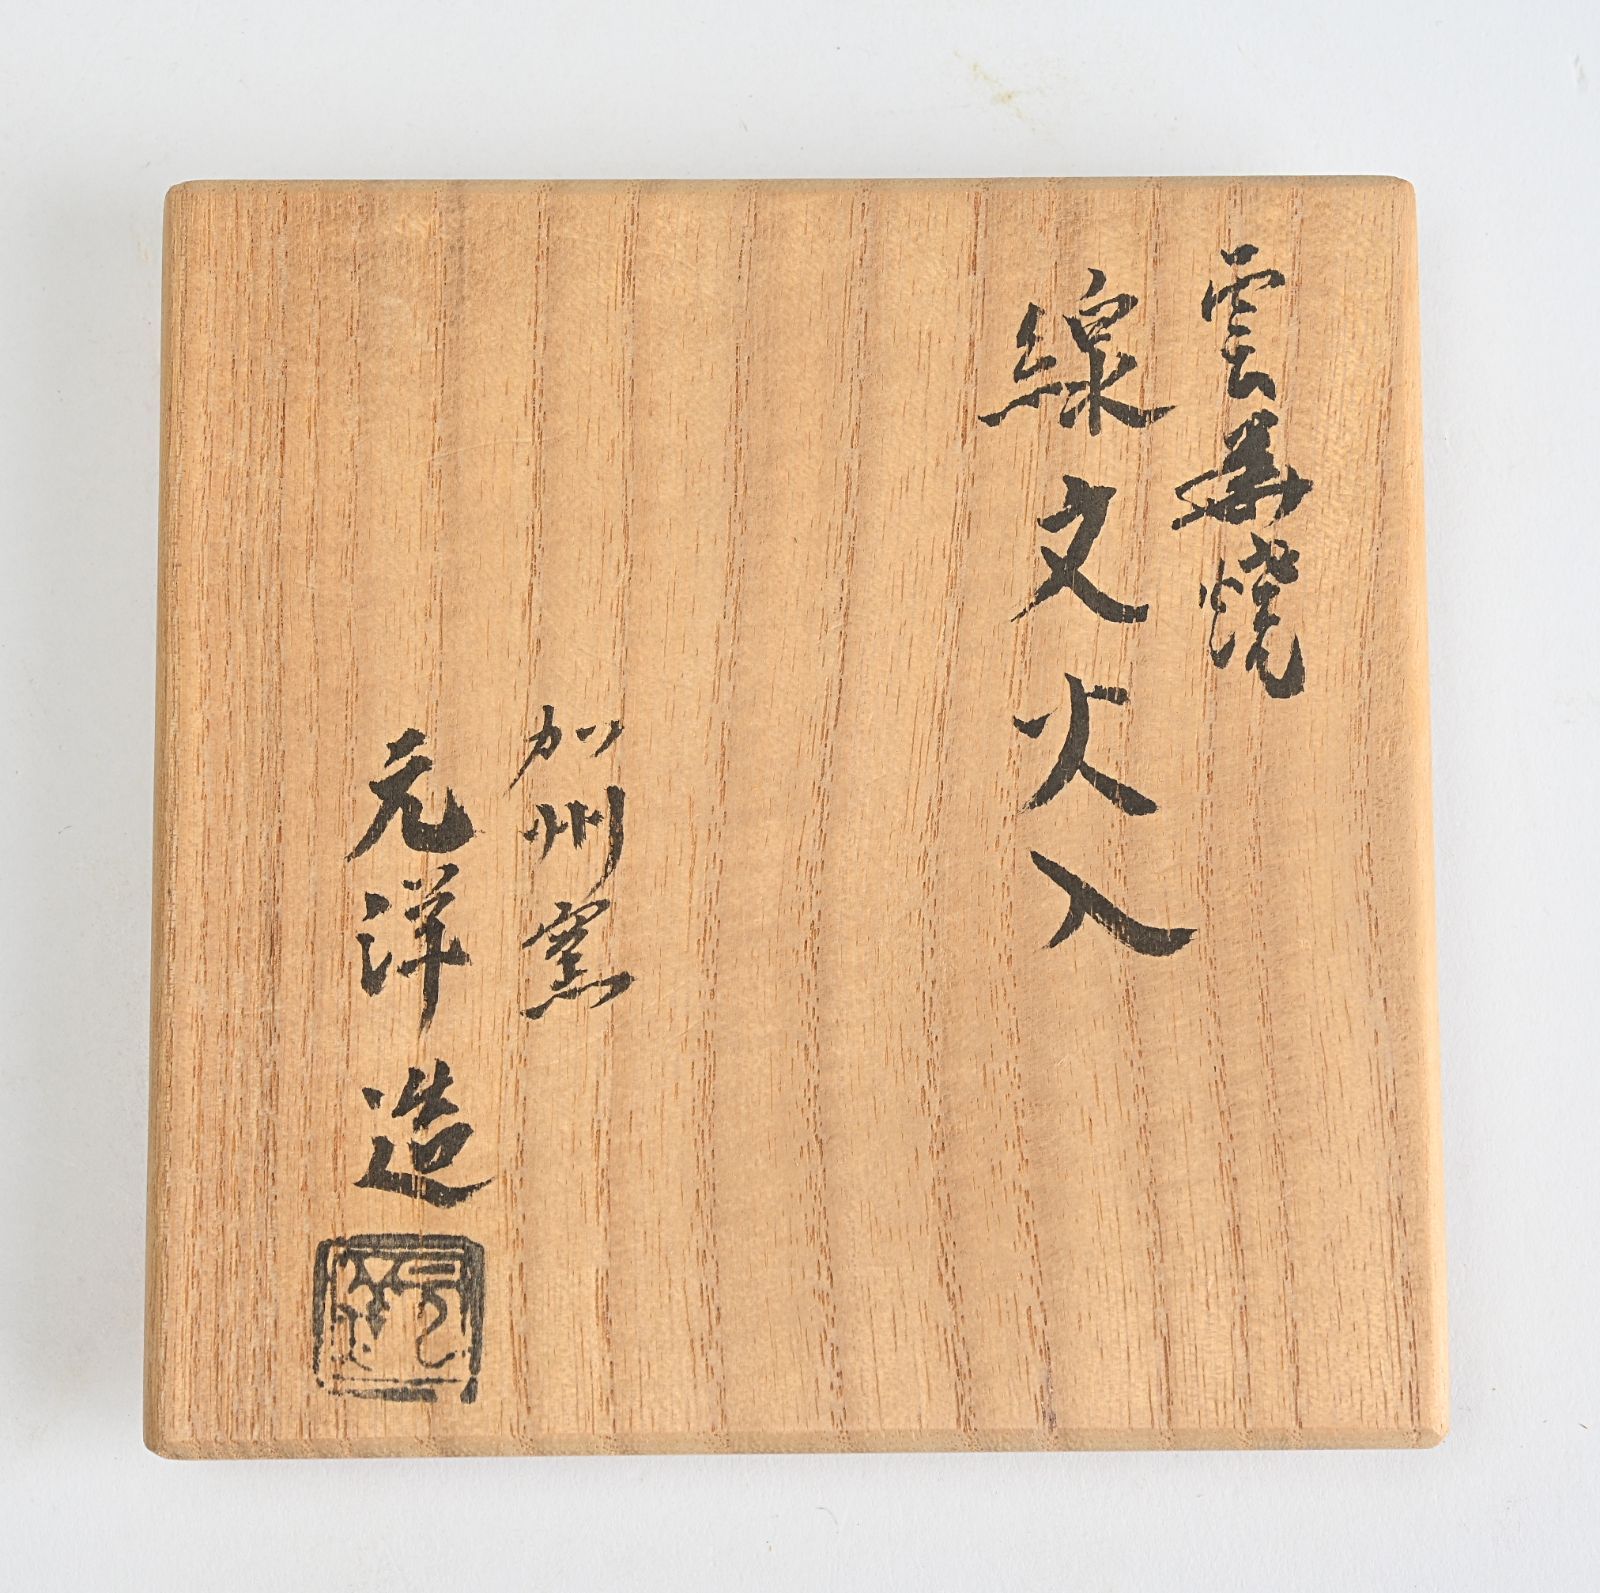 雲華焼
線文火入
加州窯
元洋造